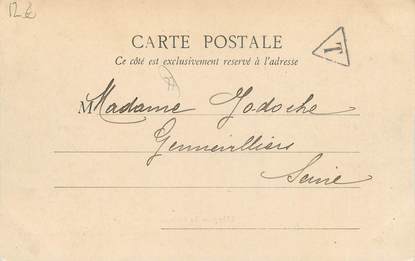 CARTE POSTALE
T
Ce côté est exclusivement reservé à l'adresse
Madame Jodoche
Gennevilliers
Seine